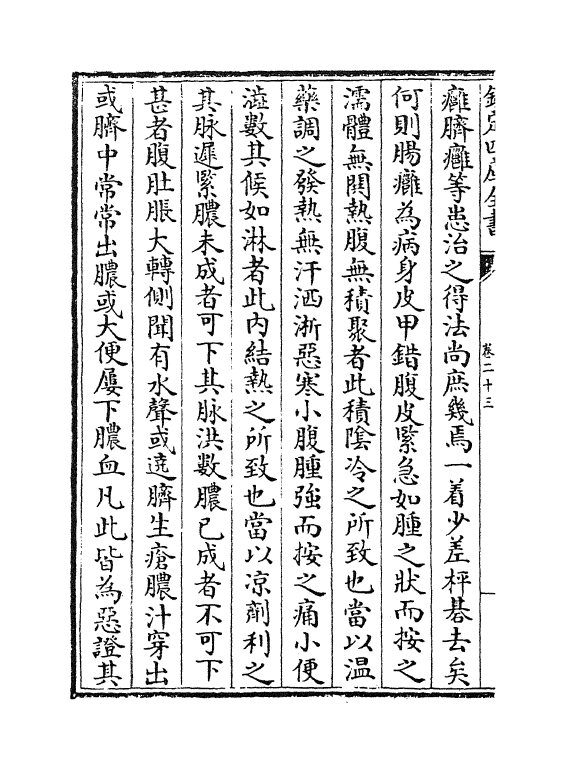 欽定四庫全書
卷二十三
癰臍癰等患治之得法尚庶幾焉一着少差枰碁去矣
何則腸癰為病身皮甲錯腹皮緊急如腫之狀而按之
濡體無関熱腹無積聚者此積陰冷之所致也當以温
藥調之發熱無汗洒淅惡寒小腹腫強而按之痛小便
澁數其候如淋者此内結熱之所致也當以凉劑利之
其脉遲緊膿未成者可下其脉洪數膿已成者不可下
甚者腹肚脹大轉側聞有水聲或遶臍生瘡膿汁穿出
或臍中常常出膿或大便屢下膿血凡此皆為惡證其